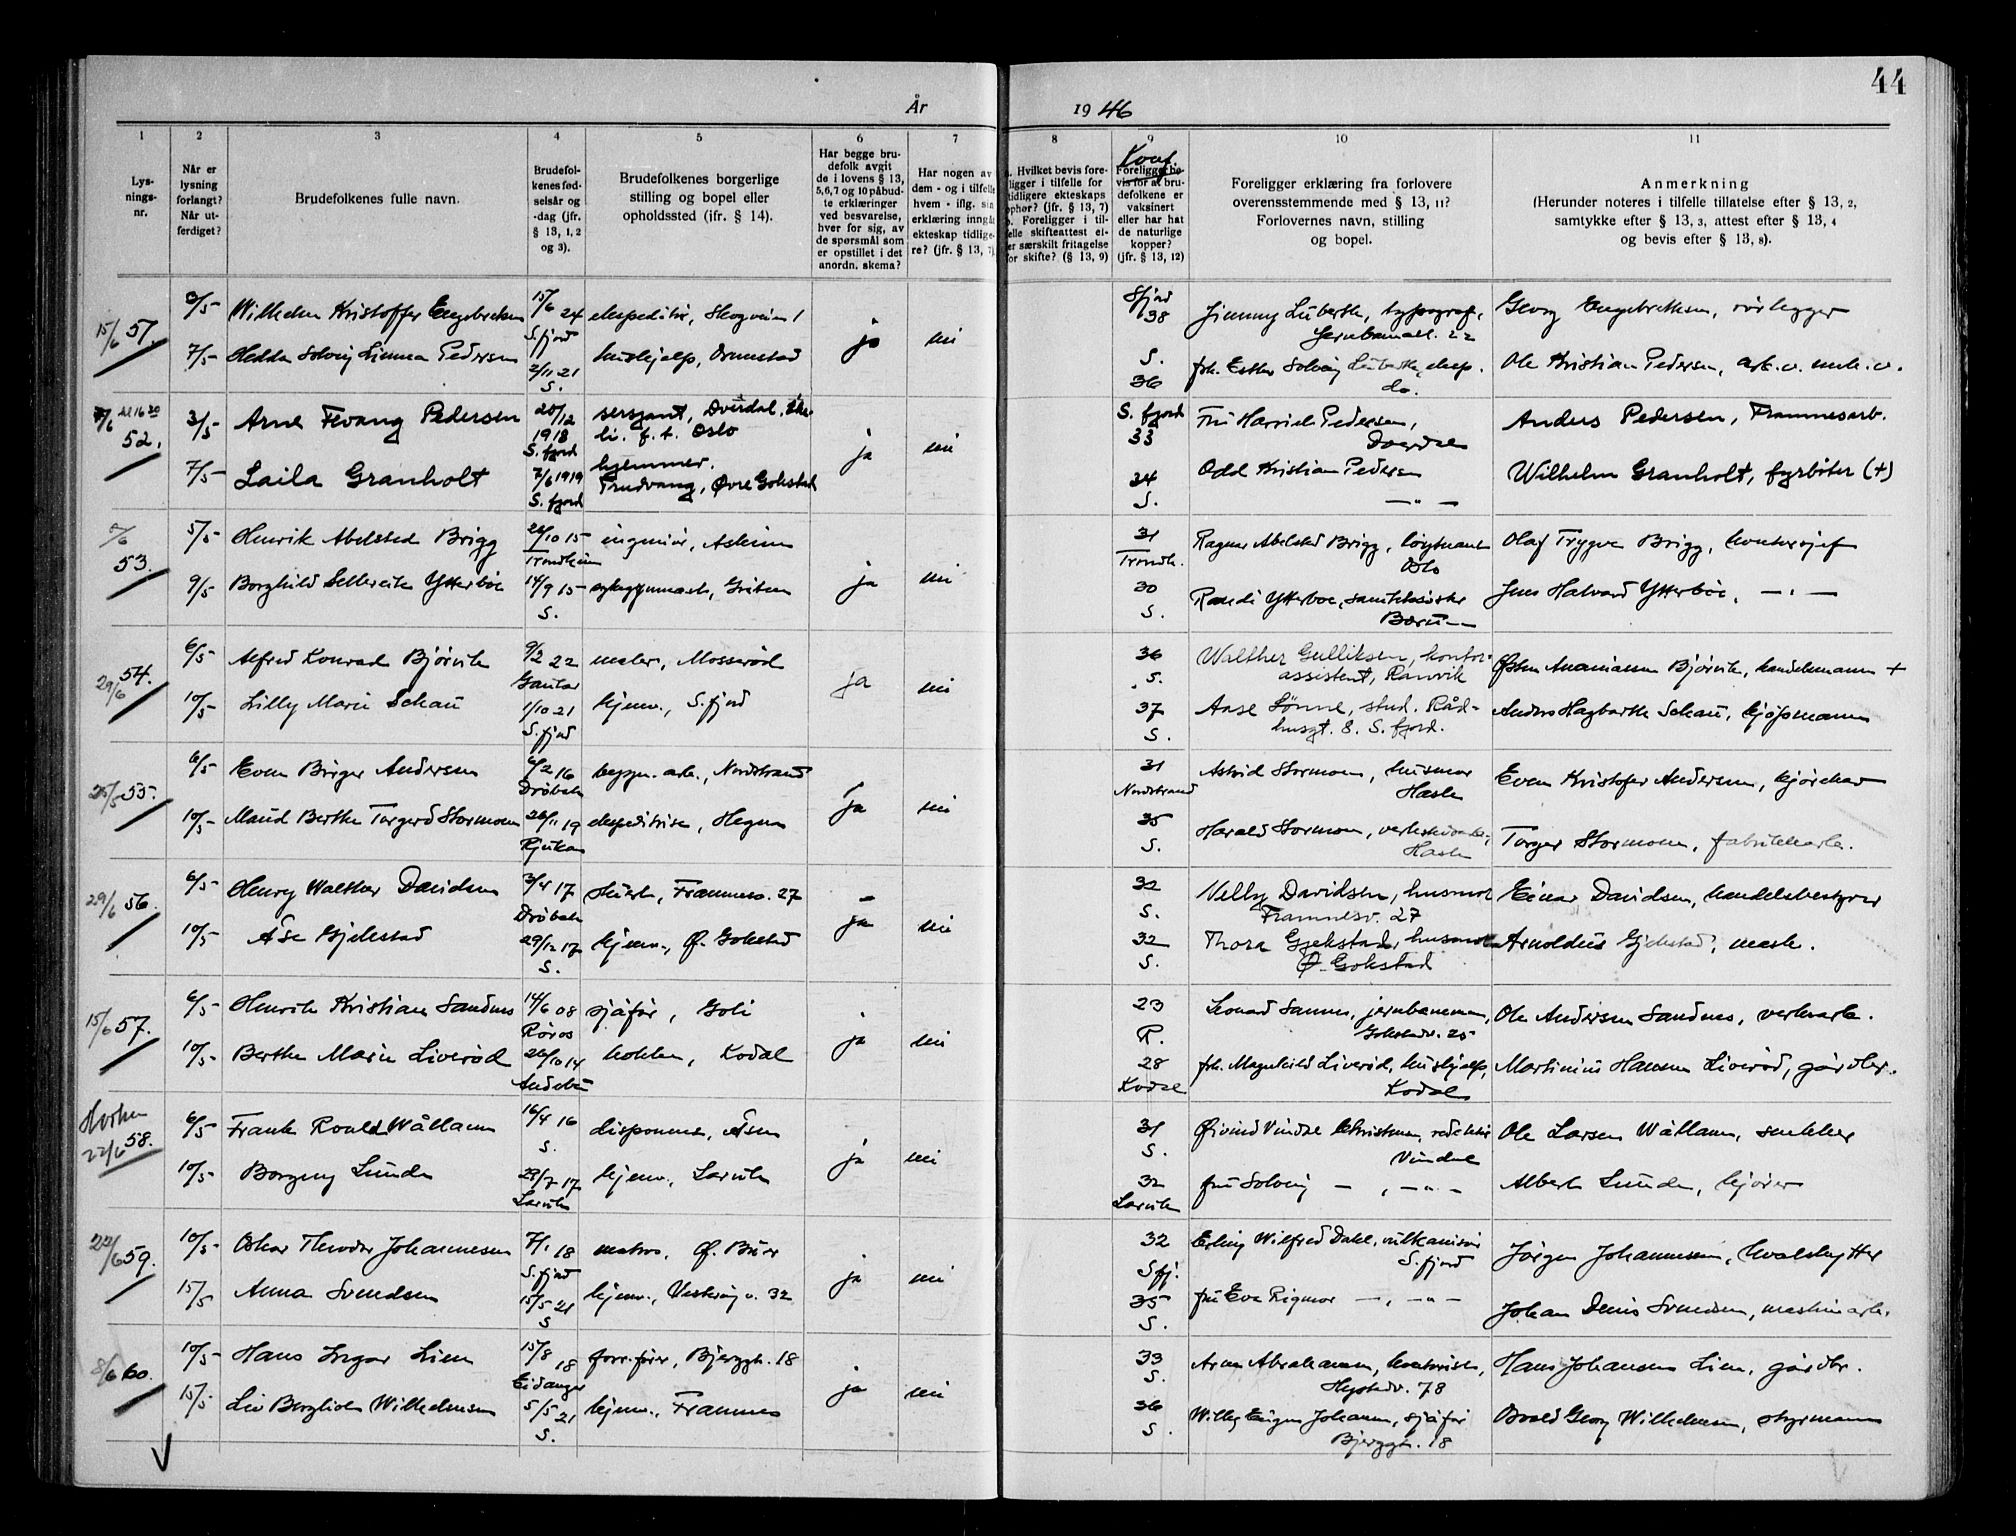 44
År 1946
1 2 3 4 5 6 7 8 9 10 11
Lys-
nings-
nr.
Når er
lysning
forlangt?
Når ut-
ferdiget?
Brudefolkenes fulle navn.
Brudefol-
kenes fød-
selsår og
-dag (jfr.
§ 13, 1, 2
og 3).
Brudefolkenes borgerlige
stilling og bopel eller
opholdssted (jfr. § 14).
Har begge bru-
defolk avgit
de i lovens § 13,
5,6,7 og 10 påbud-
te erklæringer
ved besvarelse,
hver for sig, av
de spørsmål som
er opstillet i det
anordn. skema?
Har nogen av
dem - og i tilfelle
hvem - iflg. sin
erklæring inngått
ekteskap tidlige-
re? (jfr. § 13, 7)
Hvilket bevis fore-
ligger i tilfelle for
tidligere ekteskaps
ophør? (jfr. § 13, 7)
Foreligger i til-
felle skifteattest el-
ler særskilt fritagelse
for skifte? (§ 13, 9)
Konf.
Foreligger be-
vis for at bru-
defolkene er
vaksinert
eller har hat
de naturlige
kopper?
(jfr. § 13, 12)
Foreligger erklæring fra forlovere
overensstemmende med § 13, 11?
Forlovernes navn, stilling
og bopel.
Anmerkning
(Herunder noteres i tilfelle tillatelse efter § 13, 2,
samtykke efter § 13, 3, attest efter § 13, 4
og bevis efter § 13, 8).
15/6 51. Wilhelm Kristoffer Engebretsen 15/6 24 S.fjord ekspeditør, Skogveien 1 ja nei Sfjord 38 Jimmy Lüberth, typograf, Jernbaneall. 22 Georg Engebretsen, rørlegger
7/5 Hedda Solveig Linnea Pedersen 2/11 21 S. hushjelp, Ormestad S. 36 frk. Esther Solveig Lüberth, eksp. do. Ole Kristian Pedersen, arb.
52. 3/5 Arne Fevang Pedersen 20/12 1918 S. fjord sersjant, f. t. Oslo ja nei S. fjord 33 Fru Harriet Pedersen, Anders Pedersen, Framnesarb.
7/5 Laila Granholt 7/6 1919 S. fjord hjemmev. Trudvang, Øvre Gokstad 34 S. Odd Kristian Pedersen — " — Wilhelm Granholt, fyrbøter (+)
53. 5/5 Henrik Abelsted Brigg 10 15 Trondheim ingeniør, Askim ja nei 31 Trondh. Ragnar Abelsted Brigg, løytnant Oslo Olaf Trygve Brigg, kontorsjef
9/5 Borghild Ytterböe 14/9 15 S. sykegymnast, 30 S. Randi Ytterboe, Bærum Jens Halvard Ytterböe, — " —
29/6 54. 6/5 Alfred Konrad Bjørvik 9/2 22 maler, Mosserød ja nei 36 S. Walther Gulliksen, kontor-
assistent, Ranvik Bjørvik, handelsmann +
10/5 Lilly Marie Schau 1/10 21 S. fjord hjemv., S. fjord 37 S. Aase Lønne, stud. Råd-
husgt. 8. S. fjord. Anders Hagbarth Schau, kjøpmann
25/5 55. 6/5 Even Birger Andersen 6/2 16 Drøbak bygn. arb., Nordstrand ja nei 31 Nordstrand Astrid Stormoen, husmor Hasle Even Kristofer Andersen,
10/5 Maud Berthe Torgerd Stormoen 26/11 19 Rjukan ekspeditrise, Hegna 35 S. Harald Stormoen, Hasle Torger Stormoen, fabrikkarb.
29/6 56. 6/5 Henry Walther Davidsen 3/4 17 Drøbak Framnesv. 27 ja nei 32 S. Nelly Davidsen, husmor Framnesv. 27 Einar Davidsen, handelsbestyrer
10/5 Åse Gjekstad 29/12 17 S. hjemv., Ø. Gokstad 32 S. Thora Gjekstad, husmor Ø. Gokstad Arnoldus Gjekstad, mask.
15/6 57. 6/5 Henrik Kristian Sandnes 14/6 08 Røros sjåför, Goli ja nei 23 R. jernbanemann, Gokstadv. 25 Ole Andersen Sandnes, verksarb.
10/5 Berthe Marie Liverød 26/10 14 Andebu kokke, Kodal 28 Kodal frk. Magnhild Liverød, hushjelp, Kodal Martinius Hansen Liverød, gårdbr.
22/6 58. 6/5 Frank Ronald Wållann 16/4 16 S. disponent, Åsen ja nei 31 S. Øivind Vindal Christensen, redaktør Vindal Ole Larsen Wållann, snekker
10/5 Borgny Lunde 17 Larvik hjemv., Larvik 32 Larvik fru Solveig — , — " — Albert Lunde, kjører
22/6 59. 10/5 Oskar Theodor Johannesen 7/1 18 S. fjord matros, Ø. Bürr ja nei 32 Sfj. Erling Wilfred Dahl, vulkanisør S. fjord Jørgen Johannesen, hvalskytter
15/5 Anna Svendsen 15/5 21 S hjemv., Vesterøyv. 32 35 S. fru Eva Rigmor — , — " — Johan Denis Svendsen, maskinarb.
8/6 60. 10/5 Hans Ingar Lien 15/8 18 Eidanger forr.fører, Bjerggt. 18 ja nei 33 S. Arne Abrahamsen, Hystadv. 78 Hans Johansen Lien, gårdbr.
15/5 Liv Bergliot Wilhelmsen 5/5 21 S. hjemv., Framnes 36 S. Willy Eugen Johansen, sjåför Bjerggt. 18 Georg Wilhelmsen, styrmann